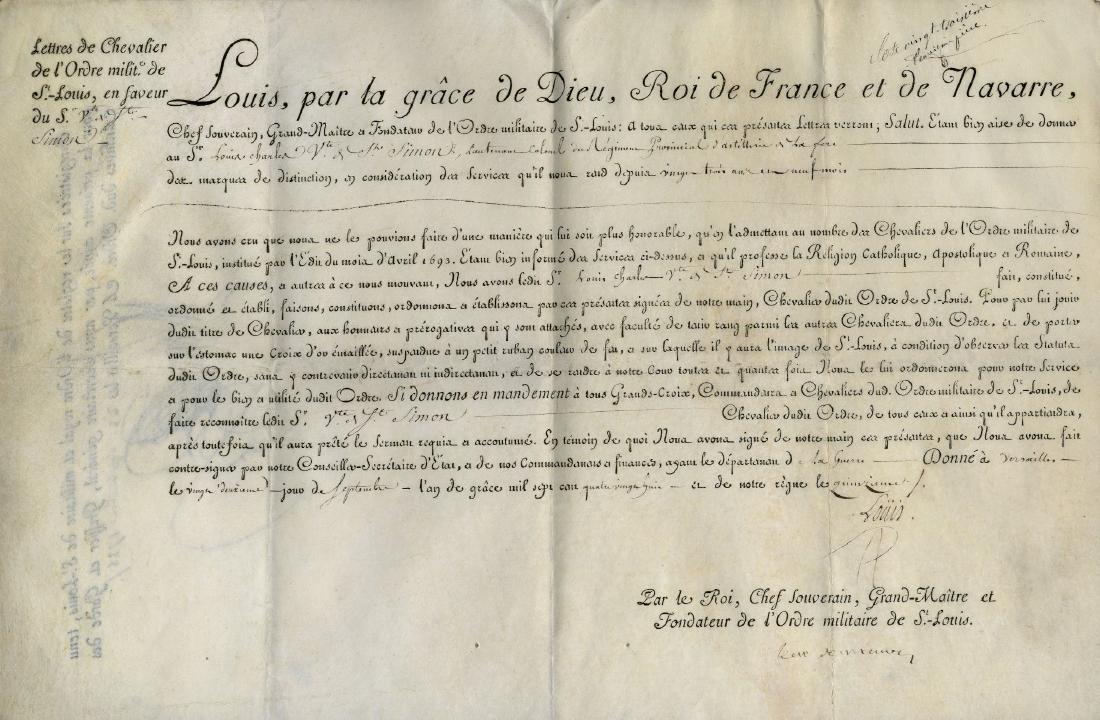 Lettres de Chevalier
de l'Ordre milit.e de
St.-Louis, en faveur
du S.r V.te de St.
Simon
Louis, par la grâce de Dieu, Roi de France et de Navarre,
Chef souverain, Grand-Maître et Fondateur de l'Ordre militaire de St.-Louis: A tous ceux qui ces présentes Lettres verront; Salut. Etant bien aise de donner
au S.r Louis charles V.te de St. Simon, Lieutenant Colonel du Régiment Provincial d'artillerie de La fere
des marques de distinction, en considération des Services qu'il nous rend depuis vingt trois ans et neuf mois
Nous avons cru que nous ne le pouvions faire d'une manière qui lui soit plus honorable, qu'en l'admettant au nombre des Chevaliers de l'Ordre militaire de
St.-Louis, institué par l'Edit du mois d'Avril 1693. Etant bien informé des Services ci-dessus, et qu'il professe la Religion Catholique, Apostolique et Romaine,
A ces causes, et autres à ce nous mouvant, Nous avons ledit S.r Louis charles V.te de St. Simon fait, constitué,
ordonné et établi, faisons, constituons, ordonnons et établissons par ces présentes signées de notre main, Chevalier dudit Ordre de St.-Louis. Pour par lui jouir
dudit titre de Chevalier, aux honneurs et prérogatives qui y sont attachés, avec faculté de tenir rang parmi les autres Chevaliers dudit Ordre, et de porter
sur l'estomac une Croix d'or émaillée, suspendue à un petit ruban couleur de feu, et sur laquelle il y aura l'image de St.-Louis, à condition d'observer les Statuts
dudit Ordre, sans y contrevenir directement ni indirectement, et de se rendre à notre Cour toutes et quantes fois Nous le lui ordonnerons pour notre Service
et pour le bien et utilité dudit Ordre. Si donnons en mandement à tous Grands-Croix, Commandeurs et Chevaliers dud. Ordre militaire de St.-Louis, de
faire reconnoitre ledit S.r V.te de St. Simon Chevalier dudit Ordre, de tous ceux et ainsi qu'il appartiendra,
après toutefois qu'il aura prêté le serment requis et accoutumé. En témoin de quoi Nous avons signé de notre main ces présentes, que Nous avons fait
contre-signer par notre Conseiller-Secrétaire d'Etat, et de nos Commandemens et finances, ayant le département de La Guerre Donné à Versailles
le vingt deuxieme jour de Septembre l'an de grâce mil sept cent quatre vingt huit et de notre règne le quinzieme
Louis
Par le Roi, Chef souverain, Grand-Maître et
Fondateur de l'Ordre militaire de St.-Louis.